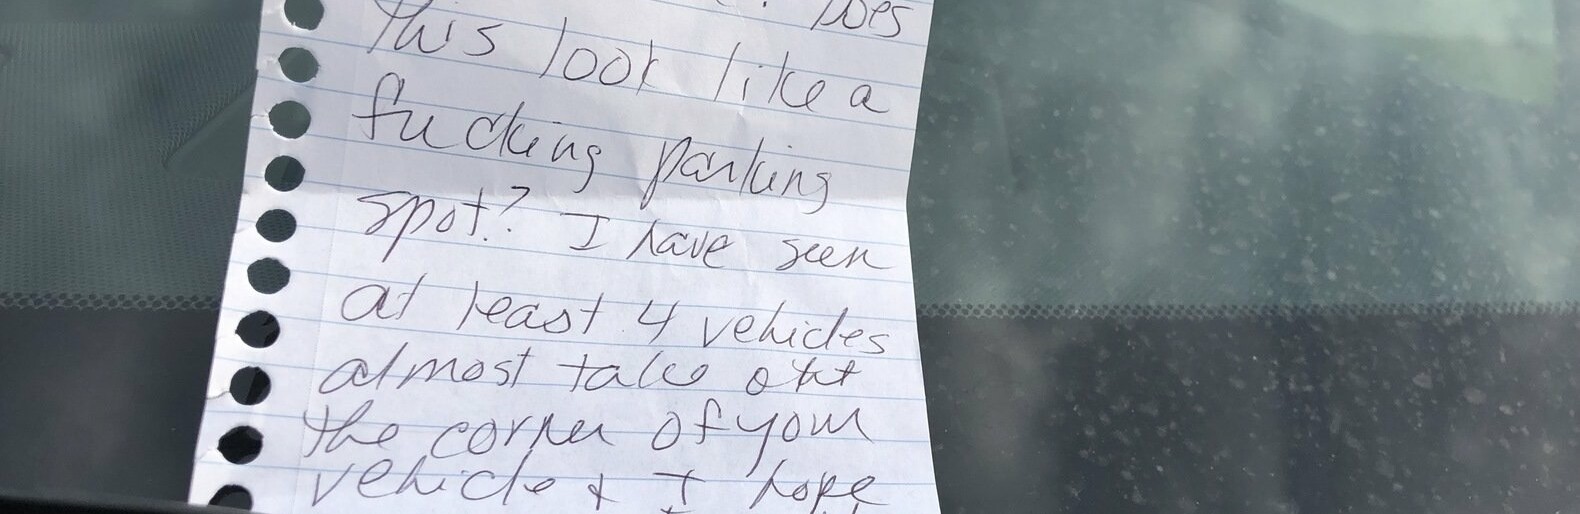 Does
this look like a
fucking parking
spot? I have seen
at least 4 vehicles
almost take out
the corner of your
vehicle & I hope